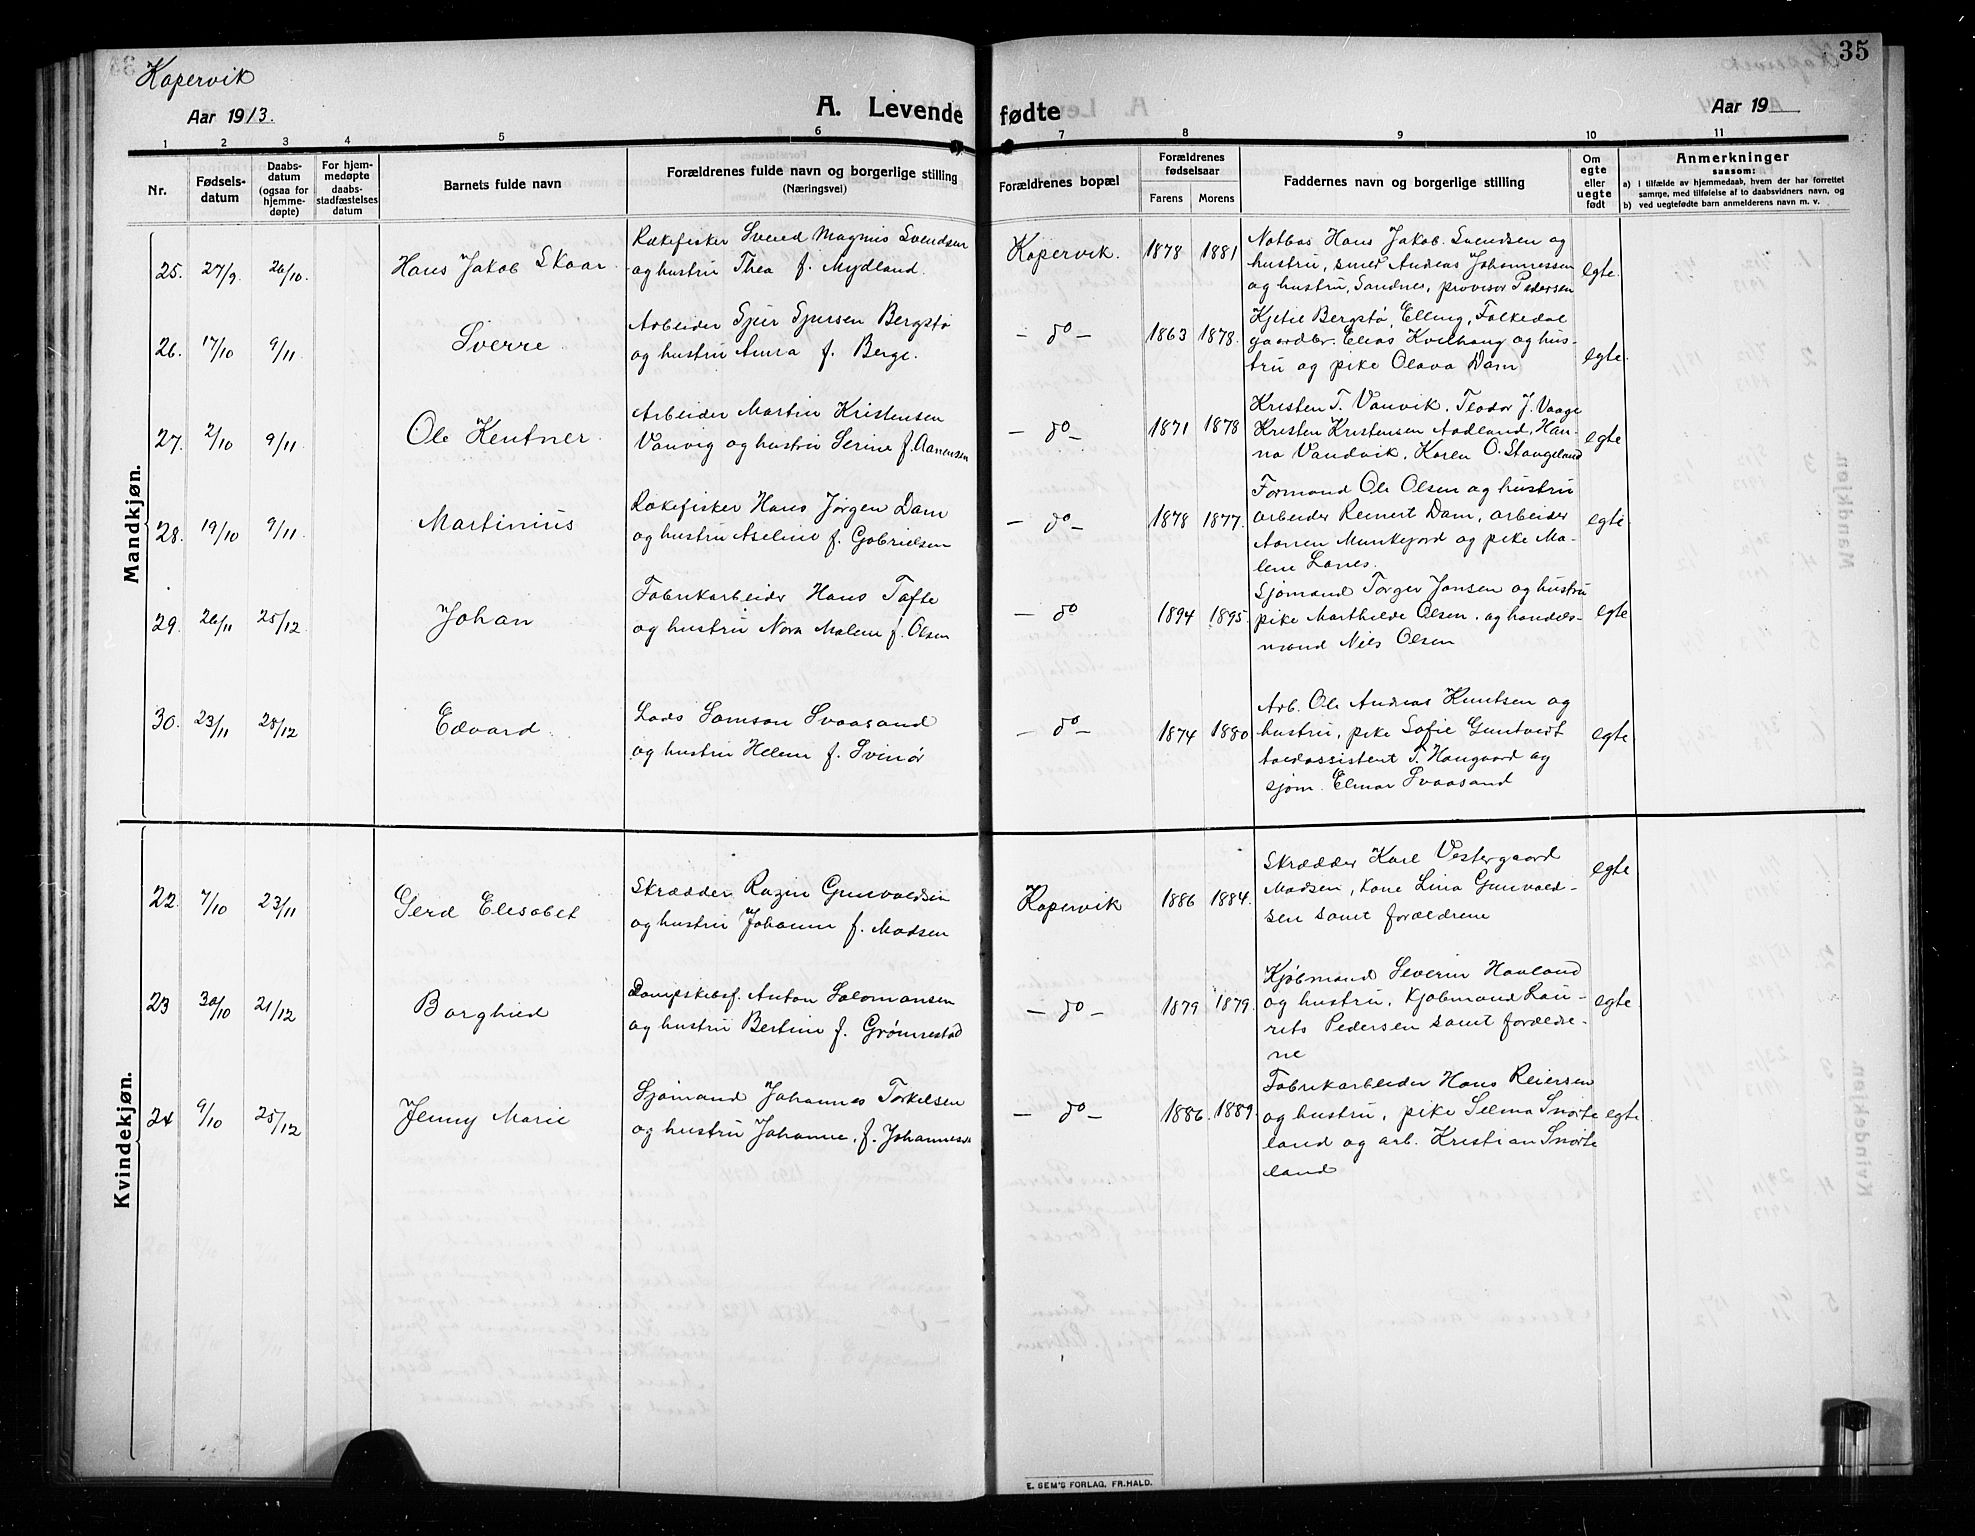 Kopervik
35
Aar 1913.
A. Levende fødte
Aar 19
1 2 3 4 5 6 7 8 9 10 11
Nr.
Fødsels-
datum
Daabs-
datum
(ogsaa for
hjemme-
døpte)
For hjem-
medøpte
daabs-
stadfæstelses
datum
Barnets fulde navn
Forældrenes fulde navn og borgerlige stilling
(Næringsvei)
Forældrenes bopæl
Forældrenes
fødselsaar
Farens Morens
Faddernes navn og borgerlige stilling
Om
egte
eller
uegte
født
Anmerkninger
saasom:
a) i tilfælde av hjemmedaab, hvem der har forrettet
samme, med tilføielse af to daabsvidners navn, og
b) ved uegtefødte barn anmelderens navn m. v.
Mandkjøn.
25. 27/9. 26/10. Hans Jakob Skaar
Rækefisker Svend Magnus Svendsen
og hustru Thea f. Mydland.
Kopervik. 1878 1881
Notbas Hans Jakob Svendsen og
hustru, smed Andreas Johannessen
og hustru, Sandnes, provisor Pedersen
egte.
26. 17/10 9/11 Sverre
Arbeider Sjur Sjursen Bergstø
og hustru Anna f. Berge.
— do — 1863 1878.
Kjetil Bergstø, Elling Falkedal
gaardbr. Elias Kvilhaug og hus-
tru og pike Olava Dam
egte.
27. 2/10 9/11 Ole Kentner
Arbeider Martin Kristensen
Vanvig og hustru Serine f. Aanensen
— do — 1871 1878
Kristen T. Vanvik, Teodor J. Vaage
Kristen Kristensen Aadland, Han-
na Vandvik, Karen O. Stangeland
egte
28. 19/10 9/11 Martinius
Rækefisker Hans Jørgen Dam
og hustru Aseline f. Gabrielsen
— do — 1878 1877.
Formand Ole Olsen og hustru
arbeider Reinert Dam, arbeider
Aanen Munkejord og pike Ma-
lene Lones.
egte
29. 26/11 25/12 Johan
Fabrikarbeider Hans Tafte
og hustru Nora Malene f. Olsen
— do 1894 1895.
Sjømand Torger Jansen og hustru
pike Marthilde Olsen, og handels-
mand Niels Olsen
egte
30. 23/11 28/12 Edvard
Lods Samson Svaasand
og hustru Helene f. Svinør
— do — 1874 1880
Arb. Ole Andreas Knutsen og
hustru, pike Sofie Guntveit
toldassistent T. Haugaard og
sjøm. Elmar Svaasand
egte.
Kvindekjøn.
22. 7/10 23/11 Gerd Elisabet
Skrædder Razin Gunvaldsen
og hustru Johanne f. Madsen
Kopervik 1886 1884.
Skrædder Karl Vestergaard
Madsen, kone Lina Gunvald-
sen samt forældrene
egte
23 30/10 21/12 Borghild
Dampskibsf. Anton Salomonsen
og hustru Bertine f. Grønnestad
— do — 1879 1879.
Kjøbmand Severin Havland
og hustru, Kjøbmand Lau-
rits Pedersen samt foreldre-
ne
egte
24 9/10 25/12 Jenny Marie
Sjømand Johannes Torkelsen
og hustru Johanne, f. Johannesen
— do — 1886. 1889.
Fabrikarbeider Hans Reiersen
og hustru, pike Selma Snørte
land og arb. Kristian Snørte
land
egte
E. SEM'S FORLAG, FR.HALD.